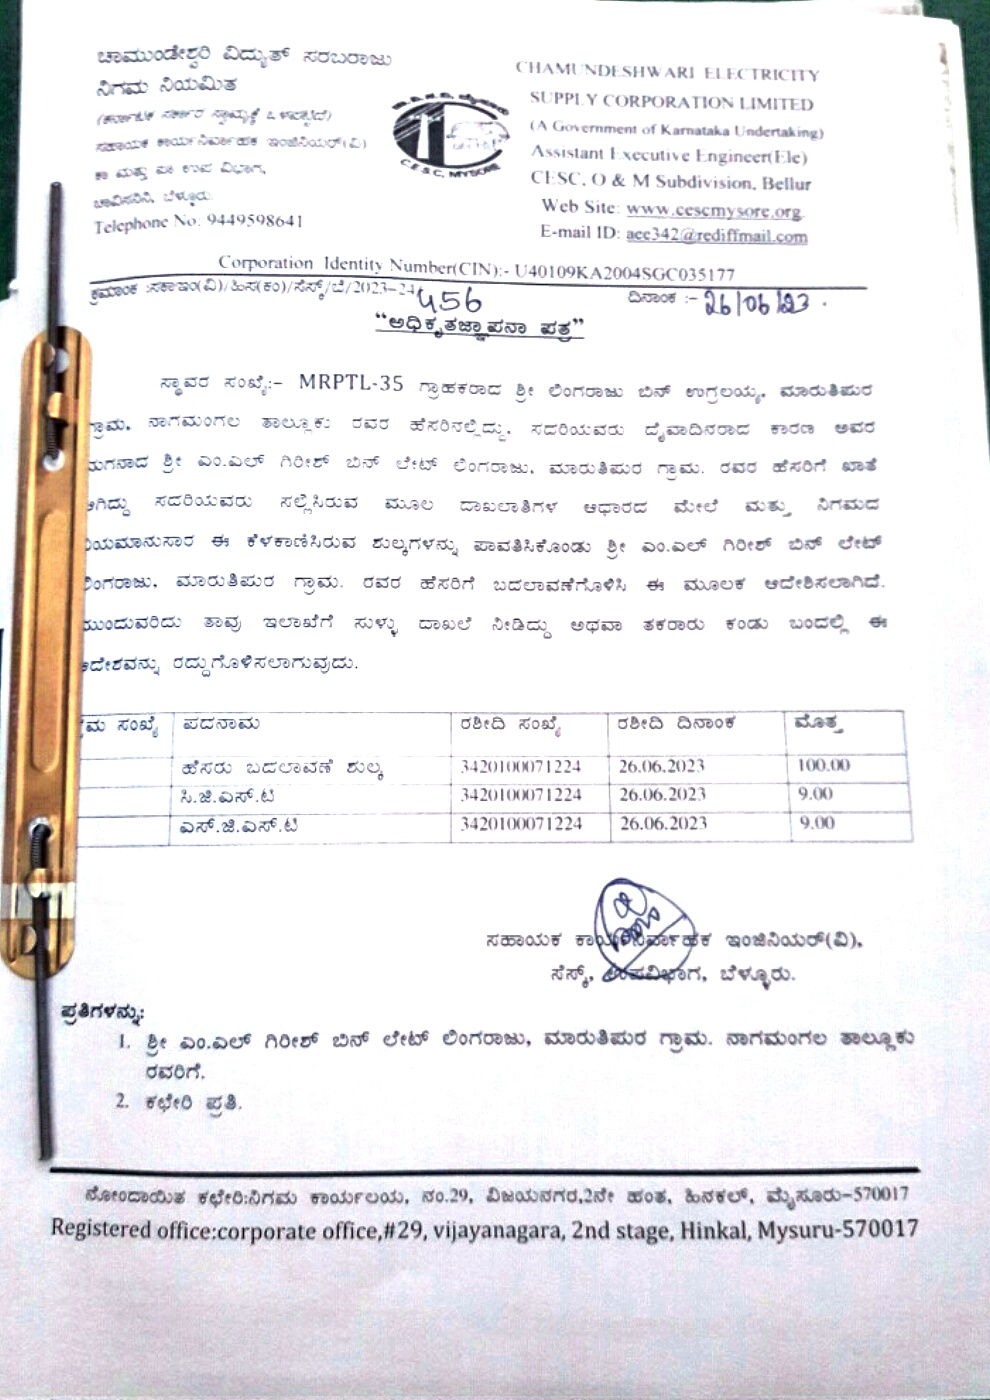 ಚಾಮುಂಡೇಶ್ವರಿ ವಿದ್ಯುತ್ ಸರಬರಾಜು
ನಿಗಮ ನಿಯಮಿತ
(ಕರ್ನಾಟಕ ಸರ್ಕಾರ ಸ್ವಾಮ್ಯಕ್ಕೆ ಒಳಪಟ್ಟಿದೆ)
ಸಹಾಯಕ ಕಾರ್ಯನಿರ್ವಾಹಕ ಇಂಜಿನಿಯರ್(ವಿ)
ಕಾ ಮತ್ತು ಪಾ ಉಪ ವಿಭಾಗ,
ಚಾವಿಸನಿನಿ, ಬೆಳ್ಳೂರು.
Telephone No. 9449598641
C.E.S.C, MYSORE
CHAMUNDESHWARI ELECTRICITY
SUPPLY CORPORATION LIMITED
(A Government of Karnataka Undertaking)
Assistant Executive Engineer(Ele)
CESC, O & M Subdivision, Bellur
Web Site: www.cescmysore.org
E-mail ID: aee342@rediffmail.com
Corporation Identity Number(CIN):- U40109KA2004SGC035177
ಕ್ರಮಾಂಕ :ಸಕಾಇಂ(ವಿ)/ಹಿಸ(ಕಂ)/ಸೆಸ್ಕ್/ಬೆ/2023-24/456 ದಿನಾಂಕ :- 26/06/23.
"ಅಧಿಕೃತಜ್ಞಾಪನಾ ಪತ್ರ"
ಸ್ಥಾವರ ಸಂಖ್ಯೆ:- MRPTL-35 ಗ್ರಾಹಕರಾದ ಶ್ರೀ ಲಿಂಗರಾಜು ಬಿನ್ ಉಗ್ರಲಯ್ಯ, ಮಾರುತಿಪುರ
ಗ್ರಾಮ, ನಾಗಮಂಗಲ ತಾಲ್ಲೂಕು ರವರ ಹೆಸರಿನಲ್ಲಿದ್ದು, ಸದರಿಯವರು ದೈವಾದಿನರಾದ ಕಾರಣ ಅವರ
ಮಗನಾದ ಶ್ರೀ ಎಂ.ಎಲ್ ಗಿರೀಶ್ ಬಿನ್ ಲೇಟ್ ಲಿಂಗರಾಜು, ಮಾರುತಿಪುರ ಗ್ರಾಮ. ರವರ ಹೆಸರಿಗೆ ಖಾತೆ
ಆಗಿದ್ದು ಸದರಿಯವರು ಸಲ್ಲಿಸಿರುವ ಮೂಲ ದಾಖಲಾತಿಗಳ ಆಧಾರದ ಮೇಲೆ ಮತ್ತು ನಿಗಮದ
ನಿಯಮಾನುಸಾರ ಈ ಕೆಳಕಾಣಿಸಿರುವ ಶುಲ್ಕಗಳನ್ನು ಪಾವತಿಸಿಕೊಂಡು ಶ್ರೀ ಎಂ.ಎಲ್ ಗಿರೀಶ್ ಬಿನ್ ಲೇಟ್
ಲಿಂಗರಾಜು, ಮಾರುತಿಪುರ ಗ್ರಾಮ. ರವರ ಹೆಸರಿಗೆ ಬದಲಾವಣೆಗೊಳಿಸಿ ಈ ಮೂಲಕ ಆದೇಶಿಸಲಾಗಿದೆ.
ಮುಂದುವರಿದು ತಾವು ಇಲಾಖೆಗೆ ಸುಳ್ಳು ದಾಖಲೆ ನೀಡಿದ್ದು ಅಥವಾ ತಕರಾರು ಕಂಡು ಬಂದಲ್ಲಿ ಈ
ಆದೇಶವನ್ನು ರದ್ದುಗೊಳಿಸಲಾಗುವುದು.
ಕ್ರಮ ಸಂಖ್ಯೆ ಪದನಾಮ ರಶೀದಿ ಸಂಖ್ಯೆ ರಶೀದಿ ದಿನಾಂಕ ಮೊತ್ತ
ಹೆಸರು ಬದಲಾವಣೆ ಶುಲ್ಕ 3420100071224 26.06.2023 100.00
ಸಿ.ಜಿ.ಎಸ್.ಟಿ 3420100071224 26.06.2023 9.00
ಎಸ್.ಜಿ.ಎಸ್.ಟಿ 3420100071224 26.06.2023 9.00
ಸಹಾಯಕ ಕಾರ್ಯನಿರ್ವಾಹಕ ಇಂಜಿನಿಯರ್(ವಿ),
ಸೆಸ್ಕ್, ಉಪವಿಭಾಗ, ಬೆಳ್ಳೂರು.
ಪ್ರತಿಗಳನ್ನು:
1. ಶ್ರೀ ಎಂ.ಎಲ್ ಗಿರೀಶ್ ಬಿನ್ ಲೇಟ್ ಲಿಂಗರಾಜು, ಮಾರುತಿಪುರ ಗ್ರಾಮ. ನಾಗಮಂಗಲ ತಾಲ್ಲೂಕು
ರವರಿಗೆ.
2. ಕಛೇರಿ ಪ್ರತಿ.
ನೋಂದಾಯಿತ ಕಛೇರಿ:ನಿಗಮ ಕಾರ್ಯಲಯ, ನಂ.29, ವಿಜಯನಗರ,2ನೇ ಹಂತ, ಹಿನಕಲ್, ಮೈಸೂರು-570017
Registered office:corporate office,#29, vijayanagara, 2nd stage, Hinkal, Mysuru-570017